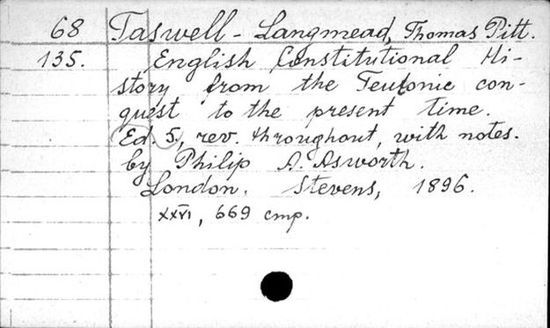 68 Taswell-Langmead, Thomas Pitt.
135. English Constitutional Hi-
story from the Teutonic con-
quest to the present time.
Ed. 5, rev. throughout, with notes.
by Philip A. Asworth.
London. Stevens, 1896.
XXVI, 669 cmp.